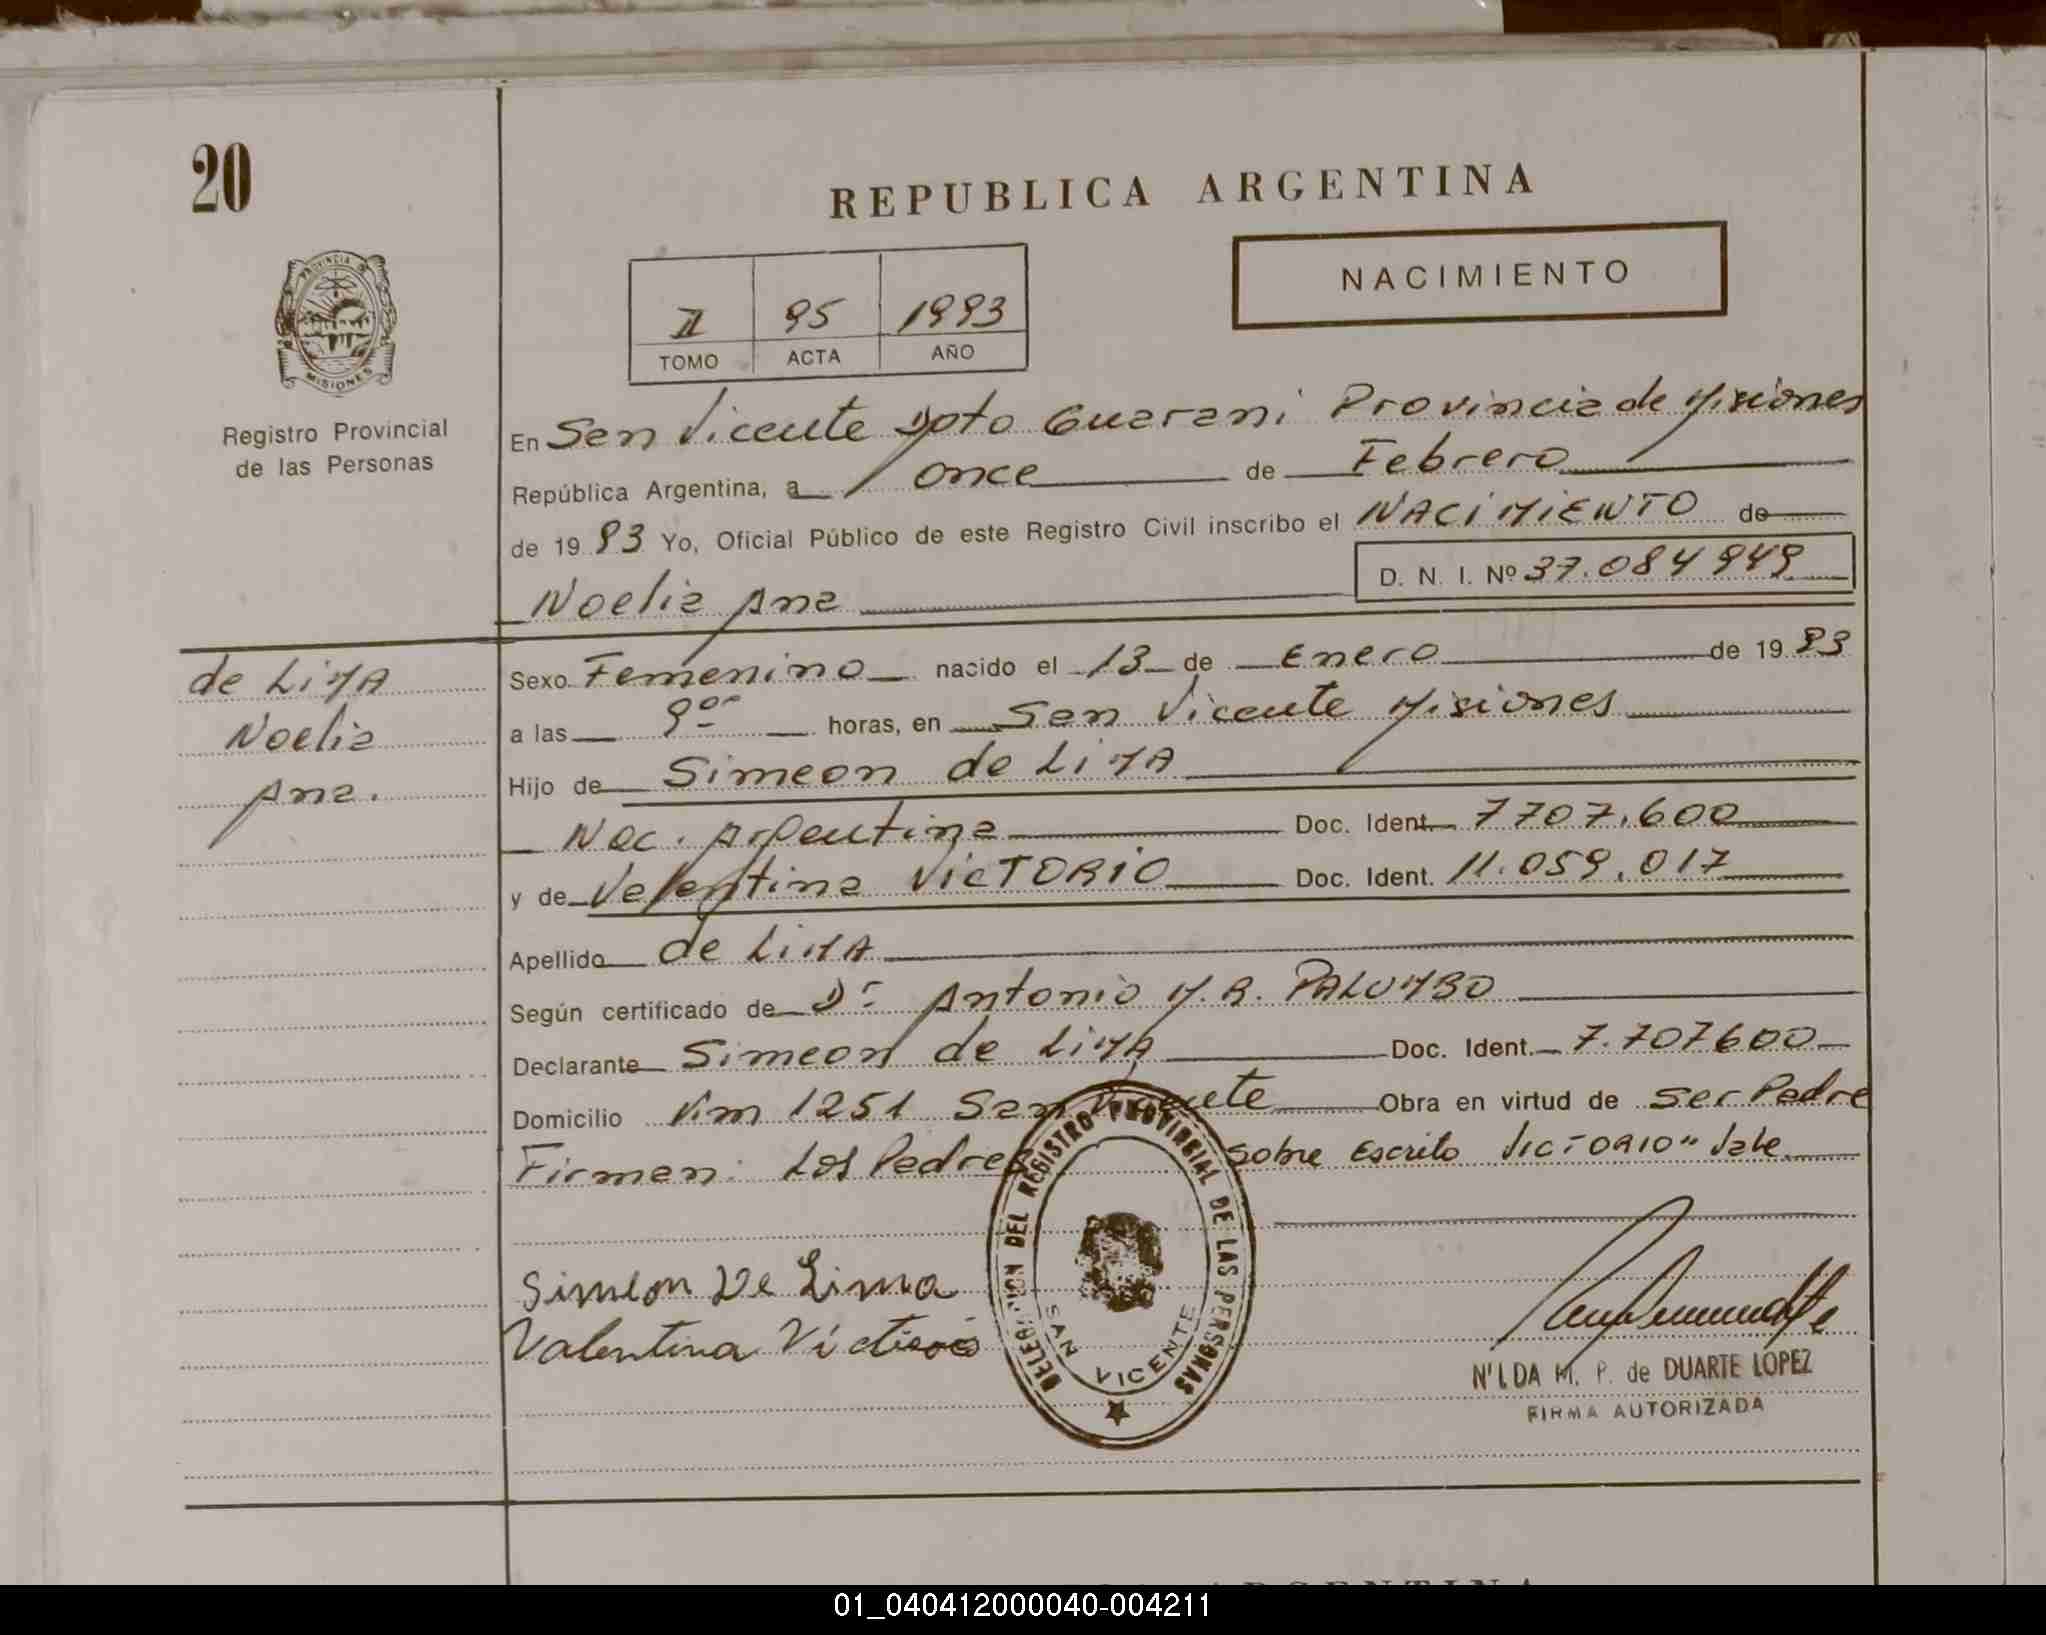 20
REPUBLICA ARGENTINA
PROVINCIA DE
MISIONES
Registro Provincial
de las Personas
NACIMIENTO
II 95 1993
TOMO ACTA AÑO
En San Vicente Dpto Guarani Provincia de Misiones
República Argentina, a once de Febrero
de 19 93 Yo, Oficial Público de este Registro Civil inscribo el NACIMIENTO de
Noelia Ana D. N. I. Nº 37.084949
de LIMA
Noelia
Ana.
Sexo Femenino nacido el 13 de Enero de 19 93
a las 9 oo horas, en San Vicente Misiones
Hijo de Simeon de LIMA
Nac. Argentina Doc. Ident. 7707.600
y de Valentina VICTORIO Doc. Ident. 11.059.017
Apellido de LIMA
Según certificado de Dr Antonio M.R. PALUMBO
Declarante Simeon de LIMA Doc. Ident. 7.707600
Domicilio Km 1251 San Vicente Obra en virtud de Ser Padre
Firman: Los Padres Sobre Escrito VICTORIO" Vale
Simeon De Lima
Valentina Victorio
DELEGACION DEL REGISTRO PROVINCIAL DE LAS PERSONAS
SAN VICENTE
NILDA M. P. de DUARTE LOPEZ
FIRMA AUTORIZADA
ARGENTINA
01_040412000040-004211